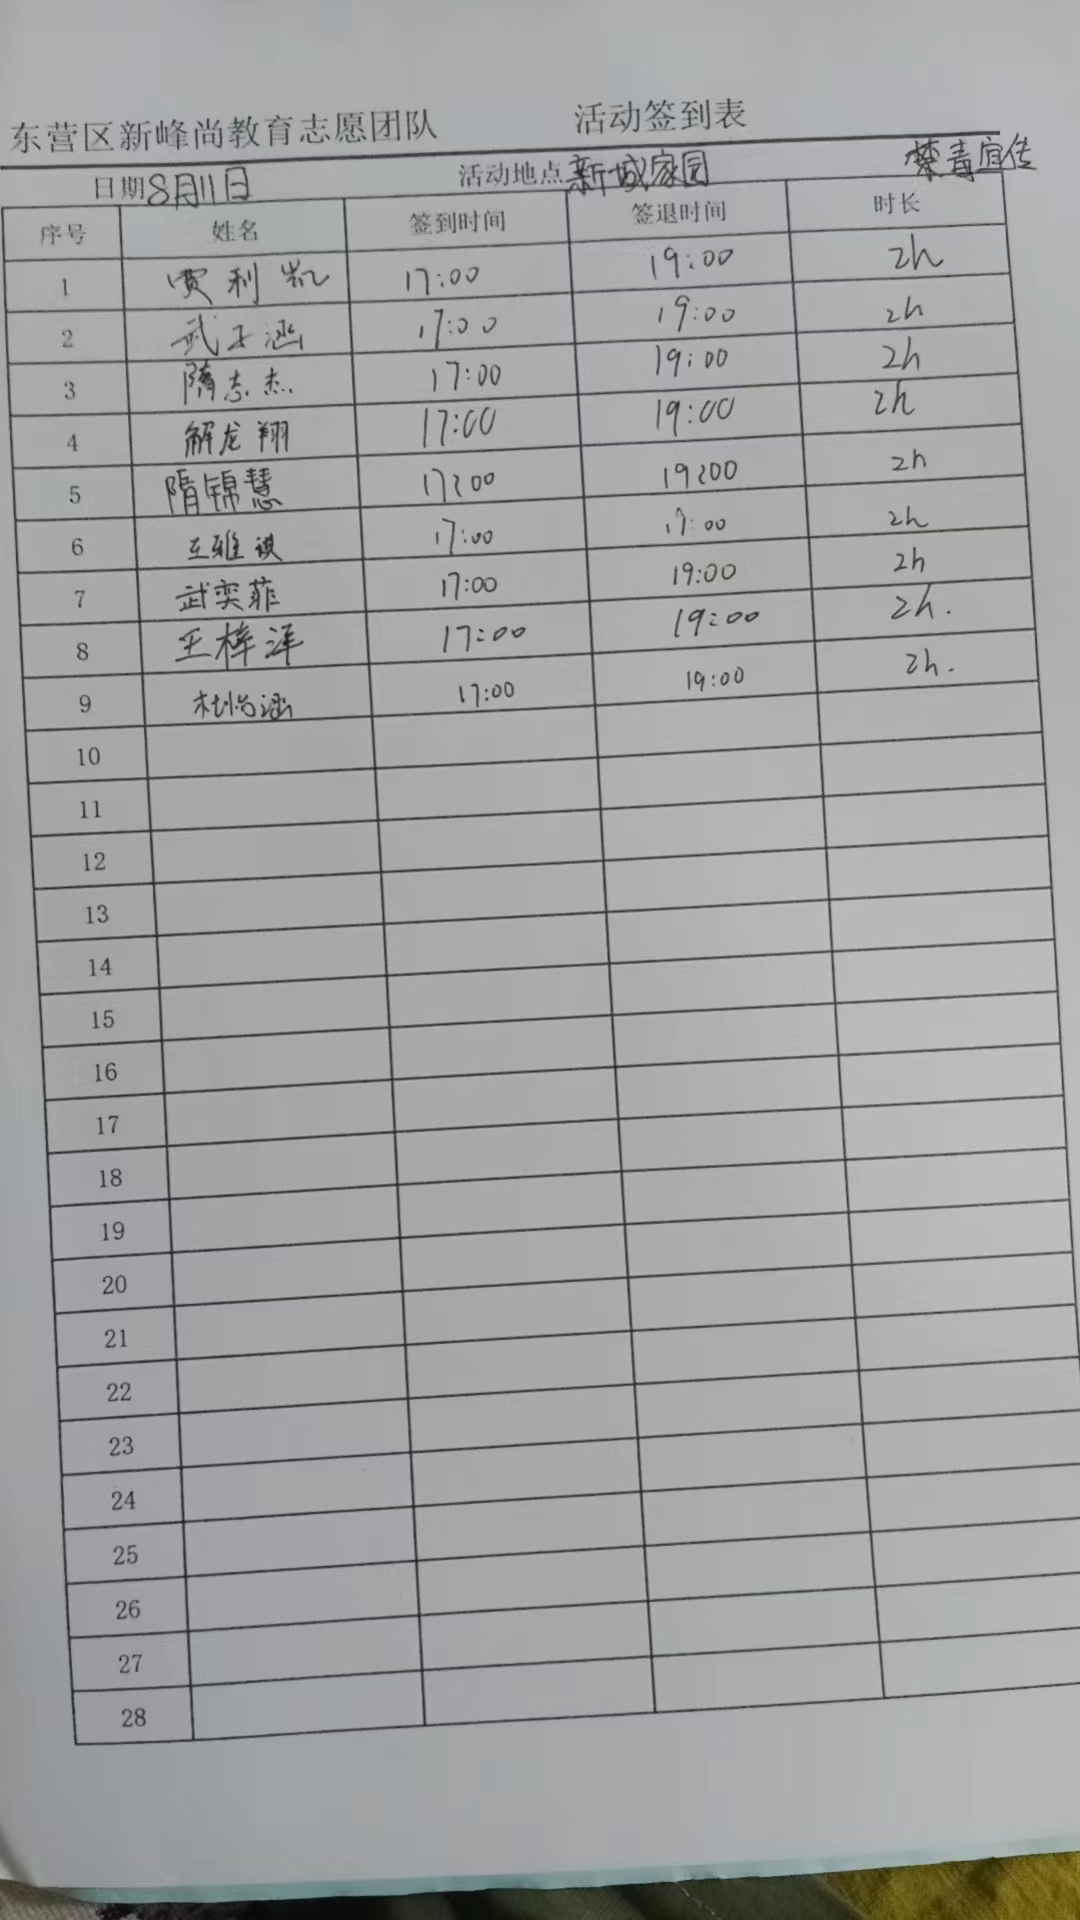 东营区新峰尚教育志愿团队 活动签到表
日期8月11日 活动地点新城家园 禁毒宣传
序号 姓名 签到时间 签退时间 时长
1 贾利凯 17:00 19:00 2h
2 武子涵 17:00 19:00 2h
3 隋志杰 17:00 19:00 2h
4 解龙翔 17:00 19:00 2h
5 隋锦慧 17:00 19:00 2h
6 王雅祺 17:00 17:00 2h
7 武奕菲 17:00 19:00 2h
8 王梓洋 17:00 19:00 2h.
9 杜怡涵 17:00 19:00 2h.
10
11
12
13
14
15
16
17
18
19
20
21
22
23
24
25
26
27
28